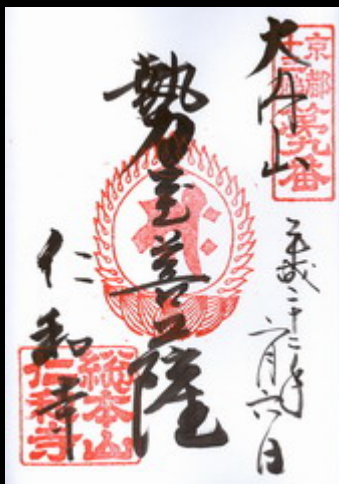 京都
十三佛第九番
大内山
平成二十二年
六月六日
勢至菩薩
仁和寺
総本山
仁和寺